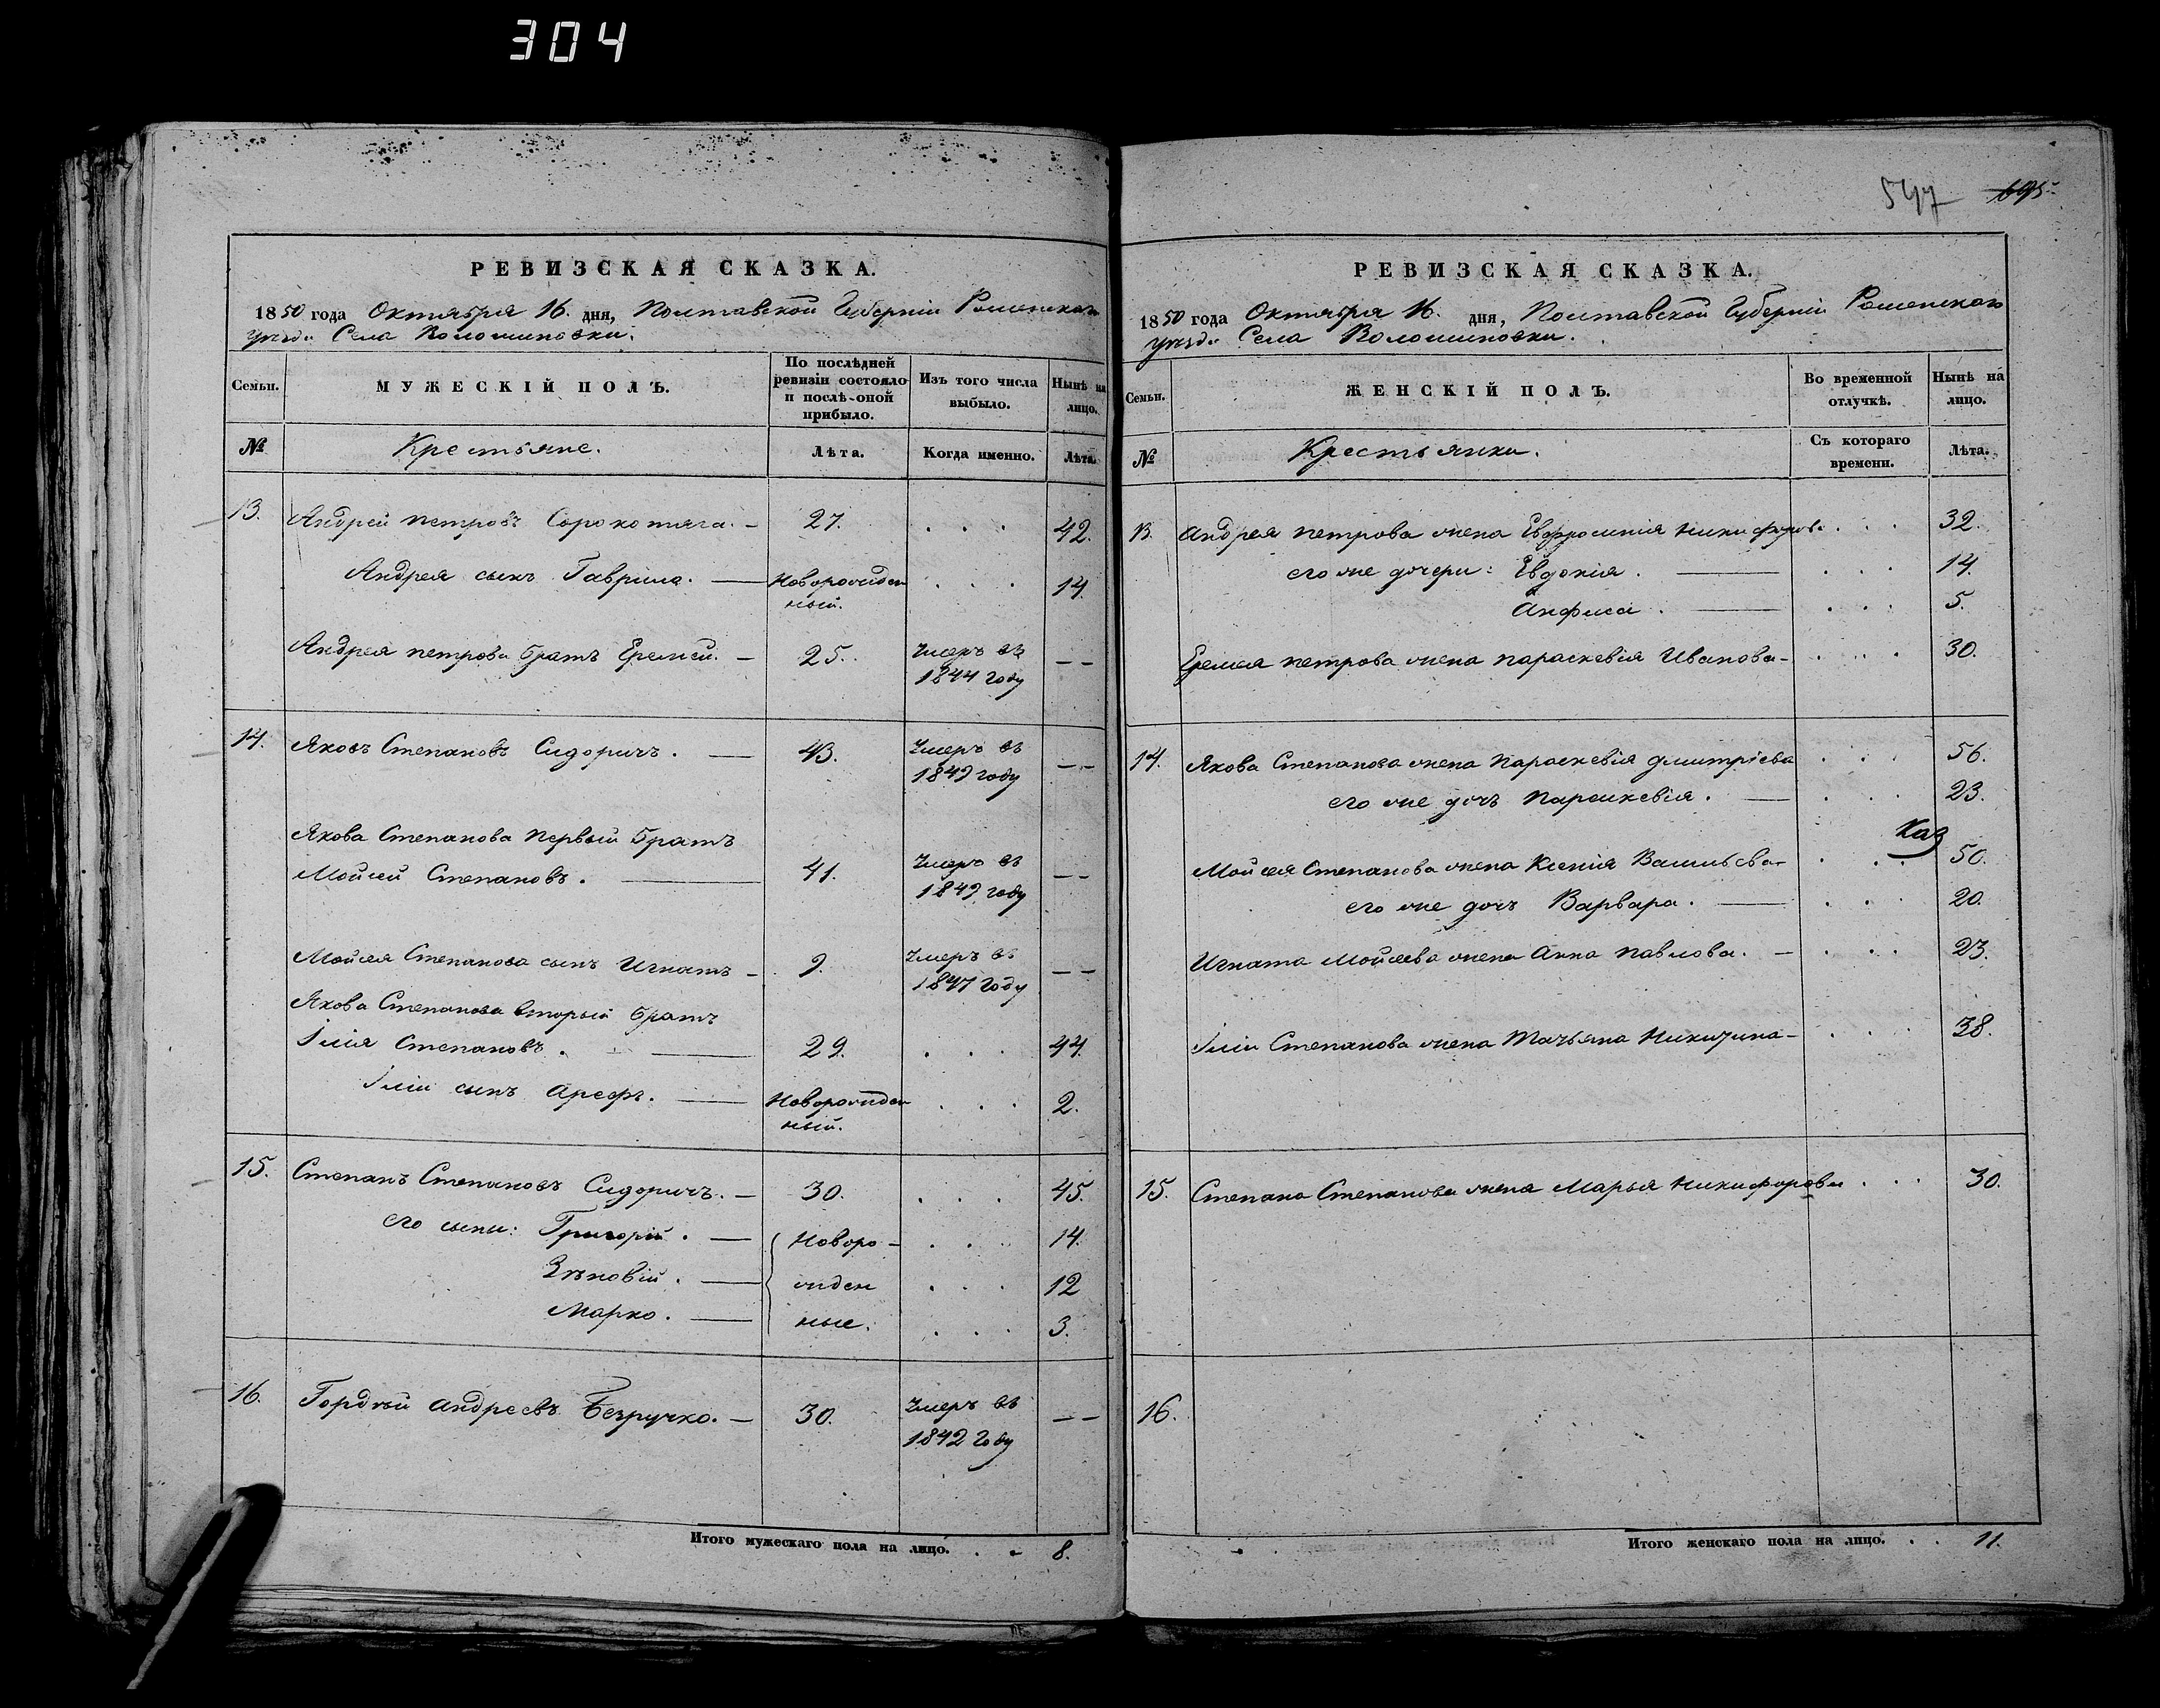 304
547 695
РЕВИЗСКАЯ СКАЗКА.
1850 года Октября 16. дня, Полтавской Губерніи Роменскаго
уѣзда Села Волошиновки.
Семьи.
МУЖЕСКІЙ ПОЛЪ.
По послѣдней ревизіи состояло и послѣ оной прибыло.
Изъ того числа выбыло.
Нынѣ на лицо.
№
Крестьяне.
Лѣта.
Когда именно.
Лѣта.
13. Андрей Петровъ Сорокотяга. — 27. . . . 42.
Андрея сынъ Гаврила. — Новорожден . . . 14.
ный.
Андрея Петрова братъ Еремей. — 25. Умеръ въ — —
1844 году
14. Яковъ Степановъ Сидоричъ. — 43. Умеръ въ — —
1849 году
Якова Степанова первый братъ
Мойсей Степановъ. — 41. Умеръ въ — —
1849 году
Мойсея Степанова сынъ Игнатъ — 9. Умеръ въ — —
1847 году
Якова Степанова вторый братъ
Ілія Степановъ. — 29. . . . 44.
Іліи сынъ Арефъ. — Новорожден . . . 2.
ный.
15. Степанъ Степановъ Сидоричъ. — 30. . . . 45.
его сыны: Григорій. — Новоро- . . . 14.
Зѣновій. — жден . . . 12
Марко. — ные. . . . 3.
16. Гордѣй Андреевъ Безручко. — 30. Умеръ въ — —
1842 году
Итого мужескаго пола на лицо. . . 8.
РЕВИЗСКАЯ СКАЗКА.
1850 года Октября 16. дня, Полтавской Губерніи Роменскаго
уѣзда Села Волошиновки.
Семьи.
ЖЕНСКІЙ ПОЛЪ.
Во временной отлучкѣ.
Нынѣ на лицо.
№
Крестьянки.
Съ котораго времени.
Лѣта.
13. Андрея Петрова жена Евфросинія Никифорова . . . 32.
его же дочери: Евдокія. — . . . 14.
Анфиса. — . . . 5.
Еремея Петрова жена Параскевія Иванова — . . . 30.
14. Якова Степанова жена Параскевія Дмитріева . . . 56.
его же дочь Параскевія. — . . . 23.
Каз
Мойсея Степанова жена Ксенія Васильева — . . . 50.
его же дочь Варвара. — . . . 20.
Игната Мойсеева жена Анна Павлова. — . . . 23.
Іліи Степанова жена Татьяна Никитина — . . . 38.
15. Степана Степанова жена Марья Никифорова . . . 30.
16.
Итого женскаго пола на лицо. . . 11.